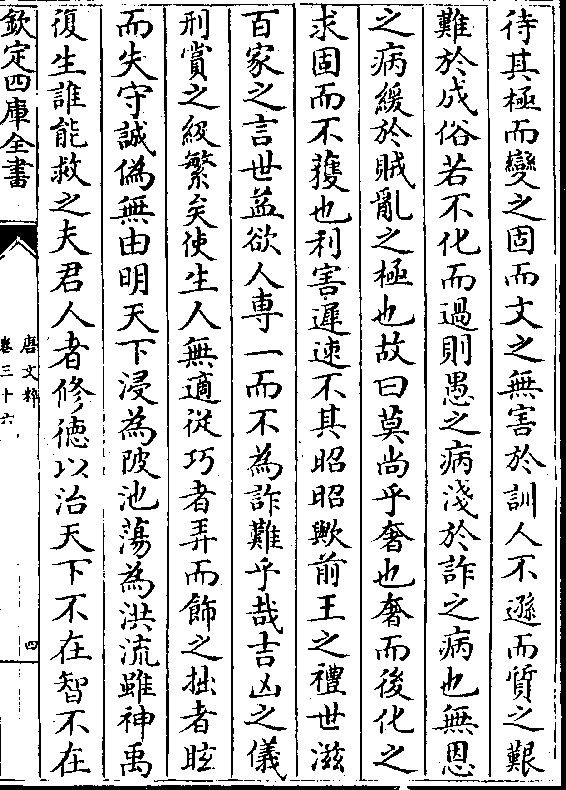 待其極而變之固而文之無害於訓人不遜而質之艱
難於成俗若不化而過則愚之病淺於詐之病也無恩
之病緩於賊亂之極也故曰莫尚乎奢也奢而後化之
求固而不獲也利害遲速不其昭昭歟前王之禮世滋
百家之言世益欲人専一而不為詐難乎哉吉凶之儀
刑賞之級繁矣使生人無適從巧者弄而飾之拙者眩
而失守誠偽無由明天下浸為陂池蕩為洪流雖神禹
復生誰能救之夫君人者修徳以治天下不在智不在
欽定四庫全書
唐文粹
卷三十六
四